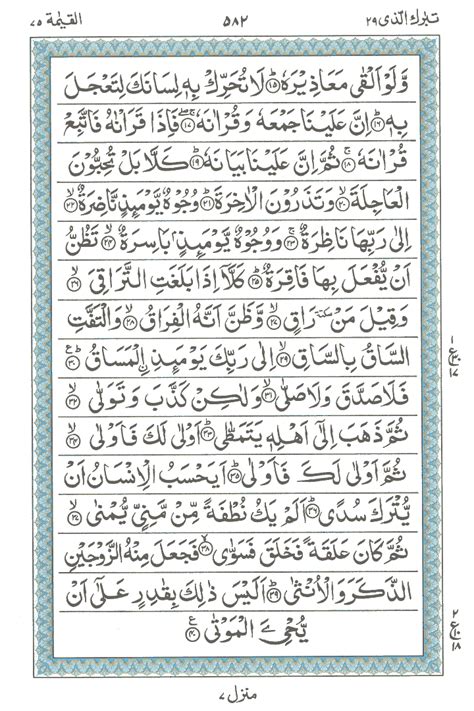 تبٰرك الذی ٢٩
٥٨٢
القیٰمة ٧٥
وَّلَوْ اَلْقٰی مَعَاذِیْرَهٗ ؕ﴿۱۵﴾ لَا تُحَرِّكْ بِهٖ لِسَانَكَ لِتَعْجَلَ
بِهٖ ؕ﴿۱۶﴾ اِنَّ عَلَیْنَا جَمْعَهٗ وَ قُرْاٰنَهٗ ﴿۱۷﴾ فَاِذَا قَرَاْنٰهُ فَاتَّبِعْ
قُرْاٰنَهٗ ﴿۱۸﴾ ثُمَّ اِنَّ عَلَیْنَا بَیَانَهٗ ؕ﴿۱۹﴾ كَلَّا بَلْ تُحِبُّوْنَ
الْعَاجِلَةَ ﴿۲۰﴾ وَ تَذَرُوْنَ الْاٰخِرَةَ ؕ﴿۲۱﴾ وُجُوْهٌ یَّوْمَىِٕذٍ نَّاضِرَةٌ ﴿۲۲﴾
اِلٰی رَبِّهَا نَاظِرَةٌ ﴿۲۳﴾ وَ وُجُوْهٌ یَّوْمَىِٕذٍۭ بَاسِرَةٌ ﴿۲۴﴾ تَظُنُّ
اَنْ یُّفْعَلَ بِهَا فَاقِرَةٌ ؕ﴿۲۵﴾ كَلَّاۤ اِذَا بَلَغَتِ التَّرَاقِیَ ﴿۲۶﴾
وَ قِیْلَ مَنْ ٚ رَاقٍ ﴿۲۷﴾ وَّ ظَنَّ اَنَّهُ الْفِرَاقُ ﴿۲۸﴾ وَ الْتَفَّتِ
السَّاقُ بِالسَّاقِ ﴿۲۹﴾ اِلٰی رَبِّكَ یَوْمَىِٕذِ ِ۟الْمَسَاقُ ؕ﴿۳۰﴾ ع
فَلَا صَدَّقَ وَ لَا صَلّٰی ﴿۳۱﴾ وَ لٰكِنْ كَذَّبَ وَ تَوَلّٰی ﴿۳۲﴾
ثُمَّ ذَهَبَ اِلٰۤی اَهْلِهٖ یَتَمَطّٰی ؕ﴿۳۳﴾ اَوْلٰی لَكَ فَاَوْلٰی ﴿۳۴﴾
ثُمَّ اَوْلٰی لَكَ فَاَوْلٰی ؕ﴿۳۵﴾ اَیَحْسَبُ الْاِنْسَانُ اَنْ
یُّتْرَكَ سُدًی ؕ﴿۳۶﴾ اَلَمْ یَكُ نُطْفَةً مِّنْ مَّنِیٍّ یُّمْنٰی ﴿۳۷﴾
ثُمَّ كَانَ عَلَقَةً فَخَلَقَ فَسَوّٰی ﴿۳۸﴾ فَجَعَلَ مِنْهُ الزَّوْجَیْنِ
الذَّكَرَ وَ الْاُنْثٰی ؕ﴿۳۹﴾ اَلَیْسَ ذٰلِكَ بِقٰدِرٍ عَلٰۤی اَنْ
یُّحْیِۦَ الْمَوْتٰی ﴿۴۰﴾ ع
۱
ع
۱۷
۲
ع
۱۸
منزل ٧